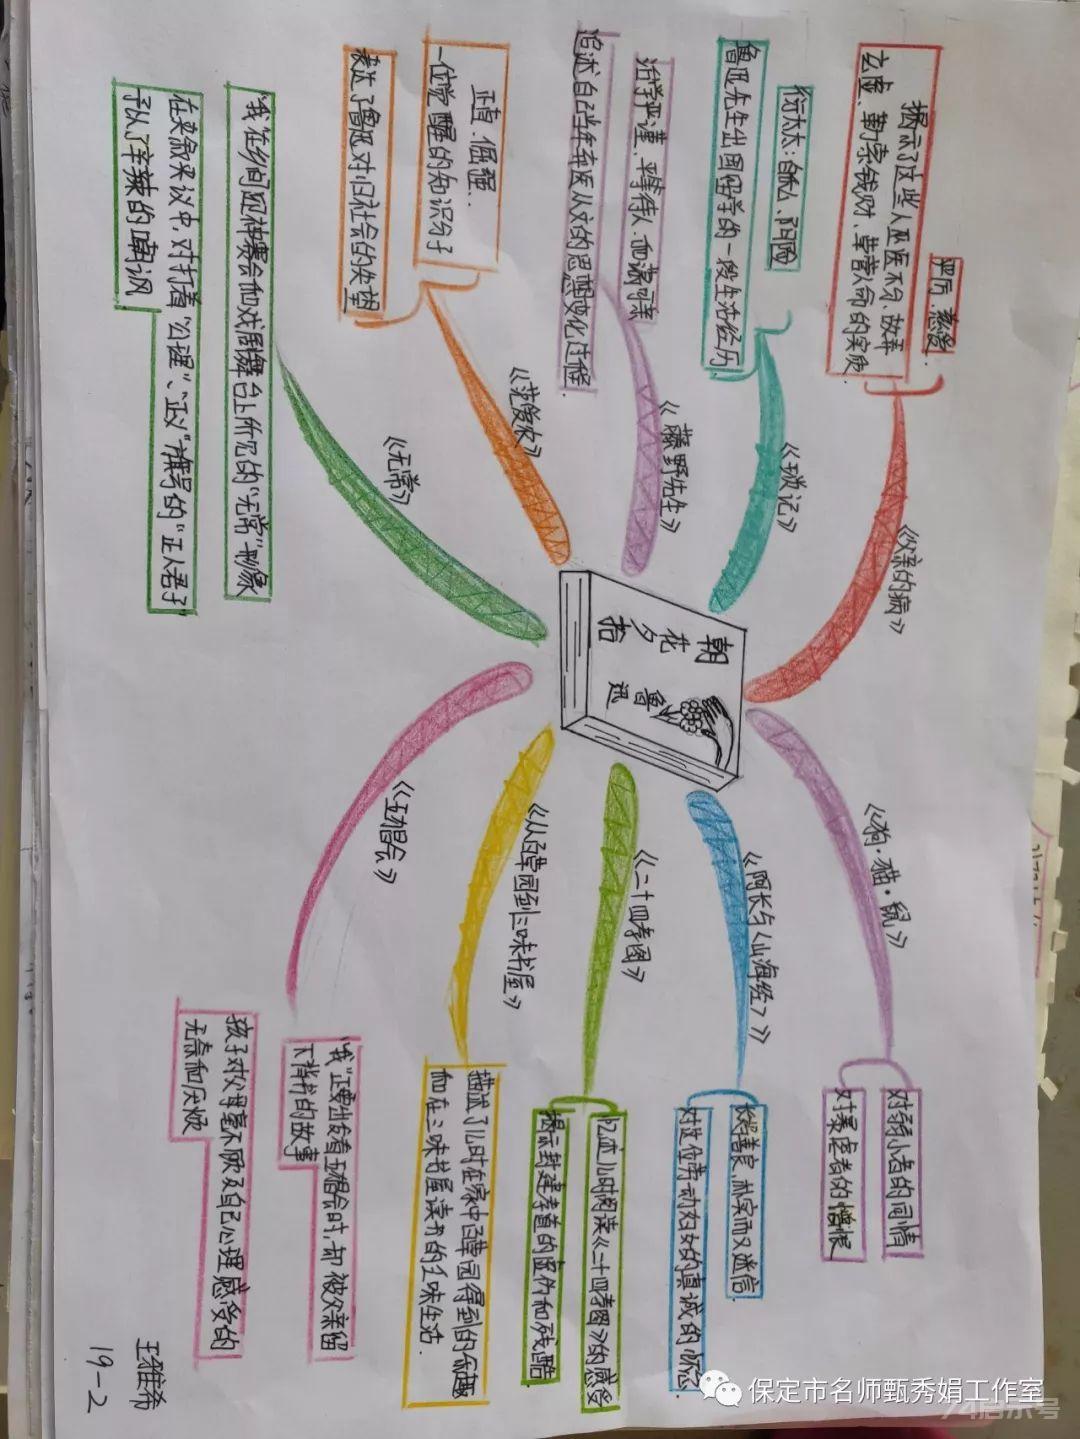 朝
花
夕
拾
鲁
迅
《狗·猫·鼠》
对弱小者的同情
对暴虐者的憎恨
《阿长与〈山海经〉》
长妈妈善良、朴实而又迷信.
对这位劳动妇女的真诚的怀念.
《二十四孝图》
记述儿时阅读《二十四孝图》的感受
揭示封建孝道的虚伪和残酷.
《从百草园到三味书屋》
描述了儿时在家中百草园得到的乐趣
和在三味书屋读书的乏味生活.
《五猖会》
"我"正要出发看五猖会时,却被父亲留
下背书的故事
孩子对父母毫不顾及自己心理感受的
无奈和厌烦
《父亲的病》
严厉、慈爱.
揭示了这些人巫医不分、故弄
玄虚、勒索钱财、草菅人命的实质.
《琐记》
衍太太:自私、阴险
鲁迅先生出国留学的一段生活经历
《藤野先生》
治学严谨、平等待人、和蔼可亲
追述自己当年弃医从文的思想变化过程.
《范爱农》
正直、倔强.
一位觉醒的知识分子
表达了鲁迅对旧社会的失望
《无常》
"我"在乡间迎神赛会和戏剧舞台上所见的"无常"形象
在夹叙夹议中,对打着"公理"、"正义"旗号的"正人君子"
予以了辛辣的嘲讽
王雅希
19-2
保定市名师甄秀娟工作室